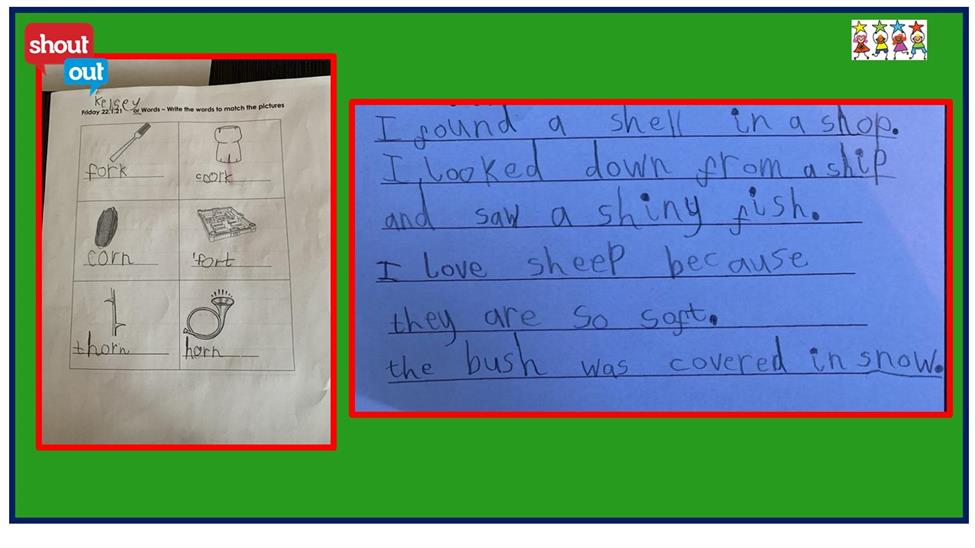 shout
out
Kelsey
Friday 22.1.21 or Words – Write the words to match the pictures
fork
coork
corn
'fort
thorn
horn
I found a shell in a shop.
I looked down from a ship
and saw a shiny fish.
I love sheep because
they are so soft.
the bush was covered in snow.